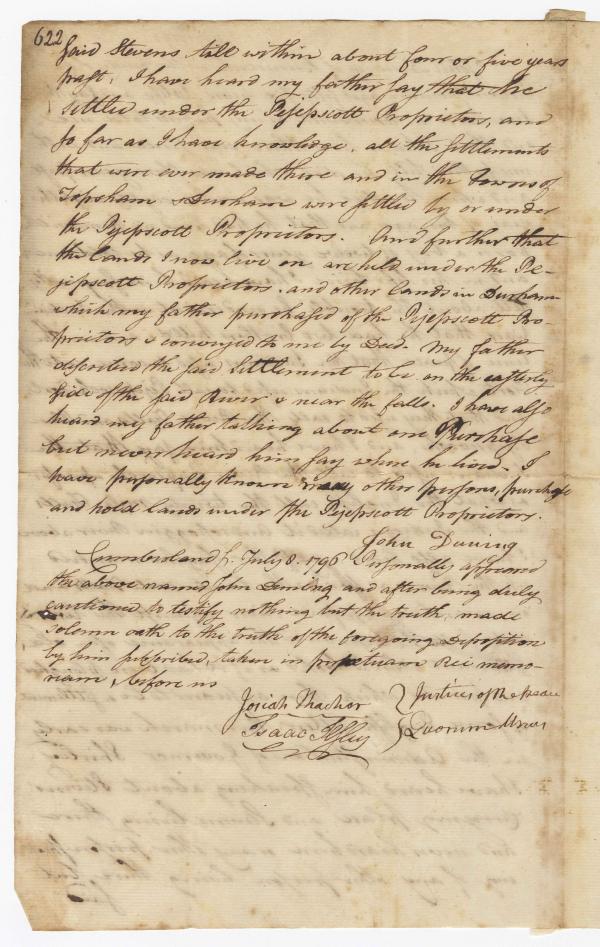 622
said Stevens till within about four or five years
past, I have heard my father say that he
settled under the Pejepscott Proprietors, and
so far as I have knowledge, all the settlements
that were ever made there and in the Towns of
Topsham & Durham were settled by or under
the Pejepscott Proprietors. And further that
the lands I now live on are held under the Pe-
jepscott Proprietors. and other lands in Durham
which my father purchased of the Pejepscott Pro-
prietors & conveyed to me by Deed. My father
described the said Settlement to be on the easterly
side of the said River & near the falls. I have also
heard my father talking about one Purchase
but never heard him say where he lived. I
have personally known many other persons, purchase
and hold lands under the Pejepscott Proprietors.
John Duning
Cumberland ss. July 8. 1796 Personally appeared
the above named John Duning and after being duly
cautioned to testify nothing but the truth, made
solemn oath to the truth of the foregoing deposition
by him subscribed, taken in perpetuam rei memo-
riam, before us
Josiah Thacher } Justices of the Peace
Isaac } Quorum Unus